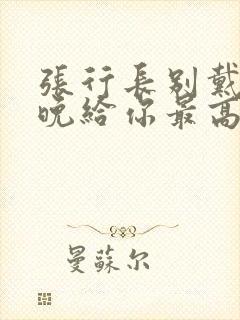 張行長別戴
晚給你最高
曼蘇尔